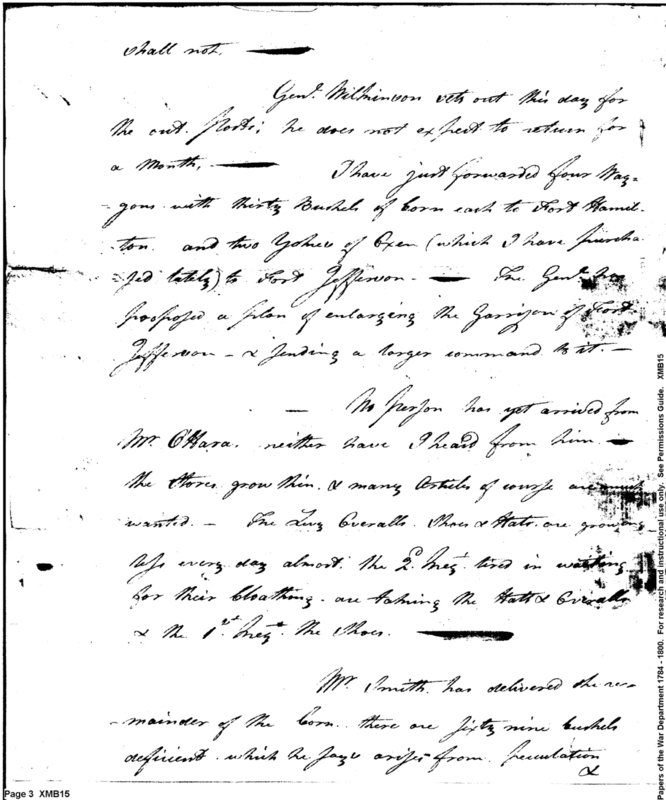 shall not. —
Genl. Wilkinson sets out this day for
the out. Posts; he does not expect to return for
a Month, — I have just forwarded four Wag-
-gons with thirty Bushels of Corn each to Fort Hamil-
ton. and two Yokes of Oxen (which I have purcha
-sed lately) to Fort Jefferson — The Genl. has
proposed a plan of enlarging the Garrison of Fort
Jefferson — & sending a larger command to it. —
— No person has yet arrived from
Mr. O'Hara. neither have I heard from him —
the Stores grow thin. & many Articles of course are much
wanted. — The Levy Overalls. Shoes & Hats. are growing
less every day almost. the 2d. Regt. tired in waiting
for their Cloathing. are taking the Hats & Overalls
& the 1st. Regt. the Shoes. —
Mr. Smith. has delivered the re-
-mainder of the Corn. there are sixty nine bushels
deficient. which he says arises from speculation
&
Page 3 XMB15
Papers of the War Department 1784 - 1800. For research and instructional use only. See Permissions Guide. XMB15